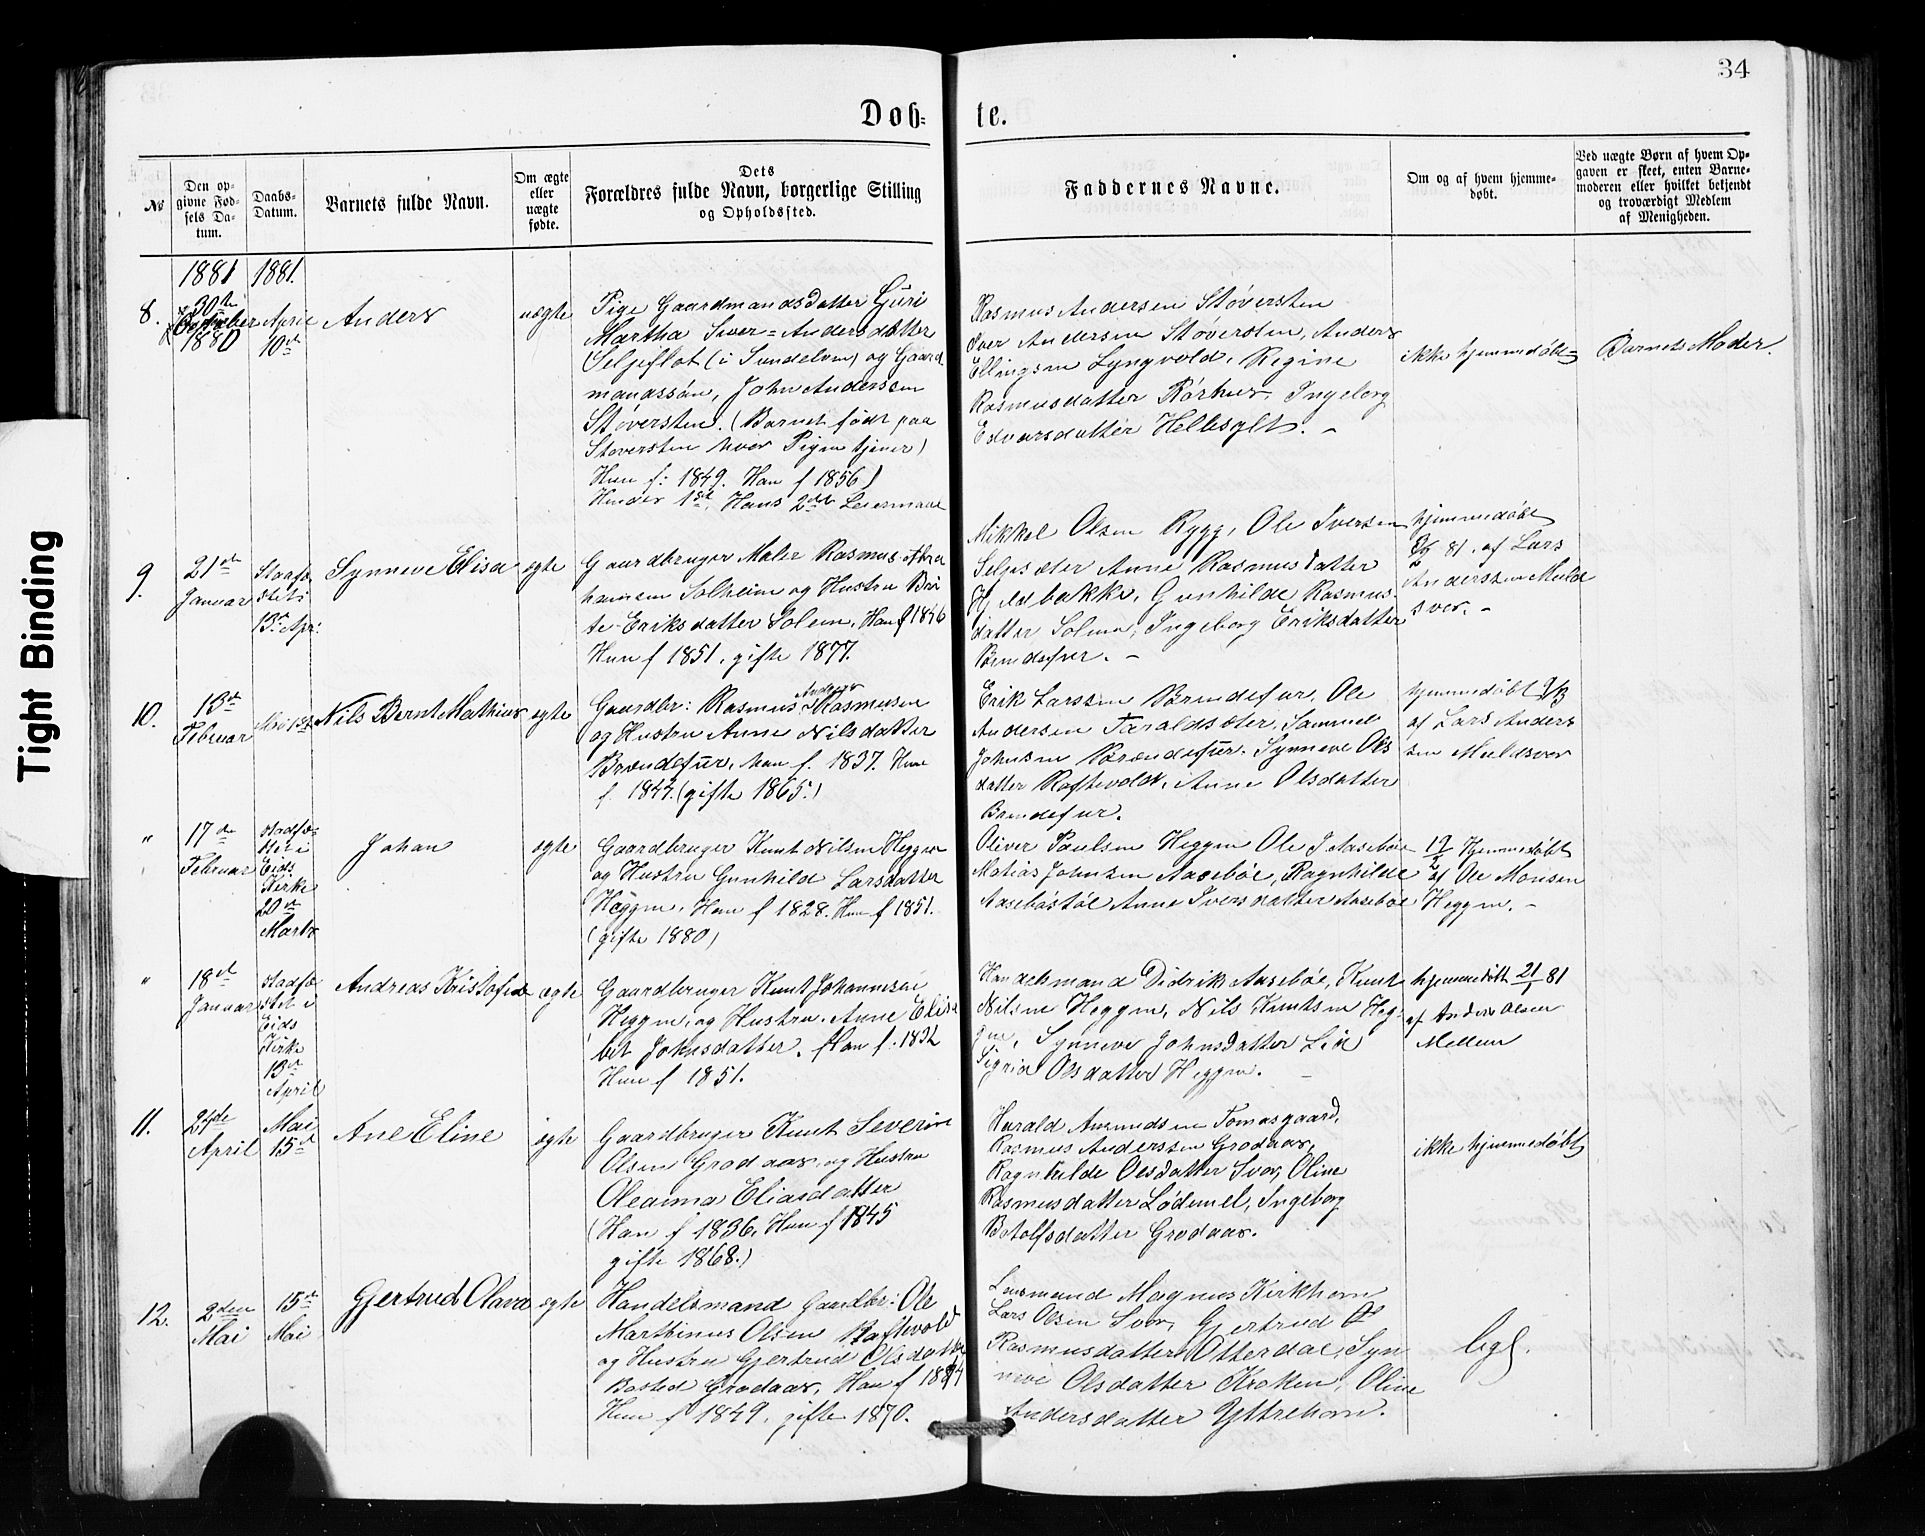 34
Døb-
te.
No
Den op-
givne Fød-
sels Da-
tum.
Daabs-
Datum.
Barnets fulde Navn.
Om ægte
eller
uægte
fødte.
Dets
Forældres fulde Navn, borgerlige Stilling
og Opholdssted.
Faddernes Navne.
Om og af hvem hjemme-
døbt.
Ved uægte Børn af hvem Op-
gaven er skeet, enten Barne-
moderen eller hvilket bekjendt
og troværdigt Medlem
af Menigheden.
1881
1881.
8.
30te
1880
April
10de
Anders
uægte
Pige Gaardmandsdatter Guri
Martha Iver-Andersdatter
Seljeflot (i Sundelven) og Gaard
mandssøn, John Anderssen
Støversten. (Barnet født paa
Støversten hvor Pigen tjener)
Hun f: 1849. Han f 1856)
Hendes 1ste, Hans 2det Leiermaal
Rasmus Andersen Støversten
Iver Andersen Støversten, Anders
Ellingsen Lyngvold, Regine
Rasmusdatter Rørhus, Ingeborg
Edvarsdatter Hellesylt. -
ikke hjemmedøbt
Barnets Moder.
9.
21de
Januar
Stadfæ
stet i
13de Apr:
Synneve Elisa
ægte
Gaardbruger Maler Rasmus Abra
hamsen Solheim og Hustru Bri
te Eriksdatter Solem, Han f 1846
Hun f 1851. gifte 1877.
Mikkel Olsen Rygg, Ole Iversen
Seljesæter Anne Rasmusdatter
Hjelebakke, Gunhilde Rasmus-
datter Solem, Ingeborg Eriksdatter
Brendefur. -
hjemmedøbt
81. af Lars
Anderssen Muld
svor. -
10.
13de
Februar
Mai 1ste
Nils Bernt Mathias
ægte
Gaardbr: Rasmus Anderss Rasmussen
og Hustru Anne Nilsdatter
Brændefur, han f. 1837. Hun
f. 1844. (gifte 1865.)
Erik Larssen Brendefur, Ole
Andersen Taraldsæter, Samuel
Johnsen Brændefur. Synneve Ols
datter Raftevold, Anne Olsdatter
Brendefur.
hjemmedøbt
af Lars Anders
sen Muldsvor
"
17de
Februar
stadfæ-
stet i
Eids
Kirke
20de
Marts
Johan
ægte
Gaardbruger Knut Nilsen Heggen
og Hustru Gunhild Larsdatter
Heggen, Han f 1828. Hun f 1851.
(gifte 1880)
Oliver Paulsen Heggen Ole J Aasebøe
Matias Johnsen Aasebøe, Ragnhilde
Aasebøstøl Anne Iversdatter Aasebøe
17/2 hjemmedøbt
af Ole Monsen
Heggen. -
"
18de
Januar
stadfæ-
stet i
Eids
Kirke
13de
April
Andreas Kristofer
ægte
Gaardbruger Knut Johannesen
Heggen, og Hustru Anne Elisa
bet Johnsdatter. Han f. 1832
Hun f 1851.
Handelsmand Didrik Aasebøe, Knut
Nilsen Heggen, Nils Knutsen Heg-
gen, Synneve Johnsdatter Lie
Sigrid Olsdatter Heggen. -
hjemmedøbt 21/1 81
af Anders Olsen
Mellem
11.
27de
April
Mai
15de
Ane Eline
ægte
Gaardbruger Knut Severin
Olsen Grodaas, og Hustru
Oleanna Eliasdatter
(Han f 1836, Hun f 1845
gifte 1868.)
Harald Amundsen Tomasgaard,
Rasmus Anderssen Grodaas,
Ragnhilde Olsdatter Svor, Oline
Rasmusdatter Lødemel, Ingeborg
Botolfsdatter Grodaas.
ikke hjemmedøbt
12.
2den
Mai
15de
Mai
Gjertrud Olava
ægte
Handelsmand Gaardbr: Ole
Marthinus Olsen Raftevold
og Hustru Gjertrud Olsdatter
Bosted Grodaas, Han f 1844
Hun f 1849, gifte 1870.
Lensmand Magnus Kirkhorn
Lars Olsen Svor, Gjertrud
Rasmusdatter Otterdal, Syn
neve Olsdatter Kroken, Oline
Andersdatter Yttrehorn.
ligs.
Tight Binding